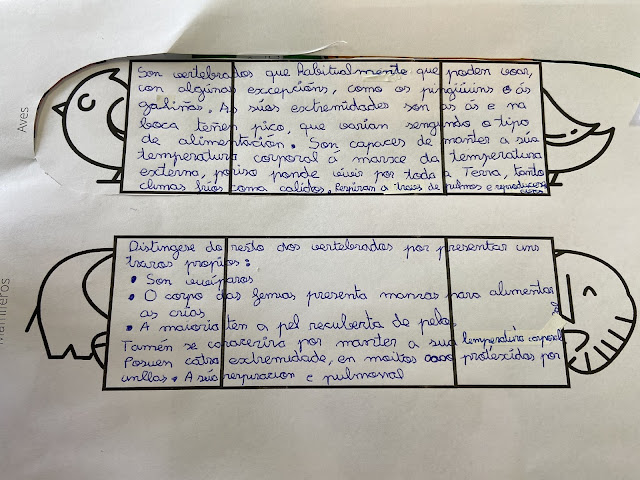 Aves
Son vertebrados que habitualmente que poden voar,
con algunas excepcións, como os pingüiuns e ás
galiñas. As súas extremidades son as ás e na
boca teñen pico, que varían sengundo o tipo
de alimentación. Son capaces de manter a súa
temperatura corporal á marxe da temperatura
externa, por iso ponde vivir por toda a Terra, tanto
climas fríos coma calidos. Respiran a traves de pulmos e
Mamíferos
Distingese do resto dos vertebrados por presentar uns
trazos propios:
• Son vivíparos
• O corpo das femias presenta mamas para alimentar
as crías
• A maioria ten a pel recuberta de pelo.
Tamén se por manter a sua temperatura corporal
Posuen catro extremidade, en moitos protexidas por
unllas. A súa respiracion e pulmonal